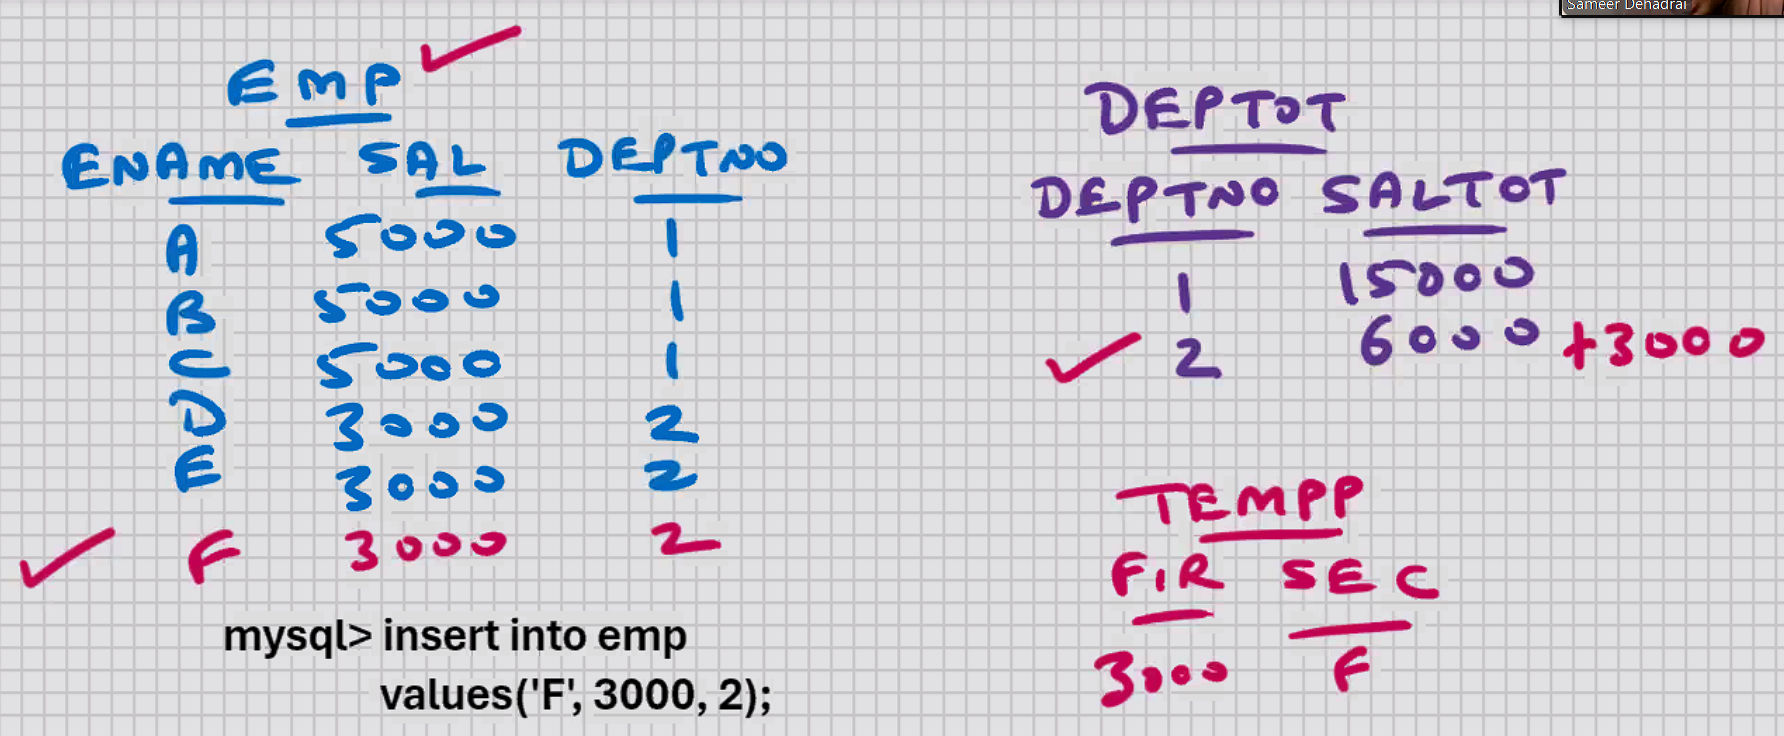 Sameer Dehadrai
EMP
ENAME SAL DEPTNO
A 5000 1
B 5000 1
C 5000 1
D 3000 2
E 3000 2
F 3000 2
mysql> insert into emp
values('F', 3000, 2);
DEPTOT
DEPTNO SALTOT
1 15000
2 6000 +3000
TEMPP
FIR SEC
3000 F